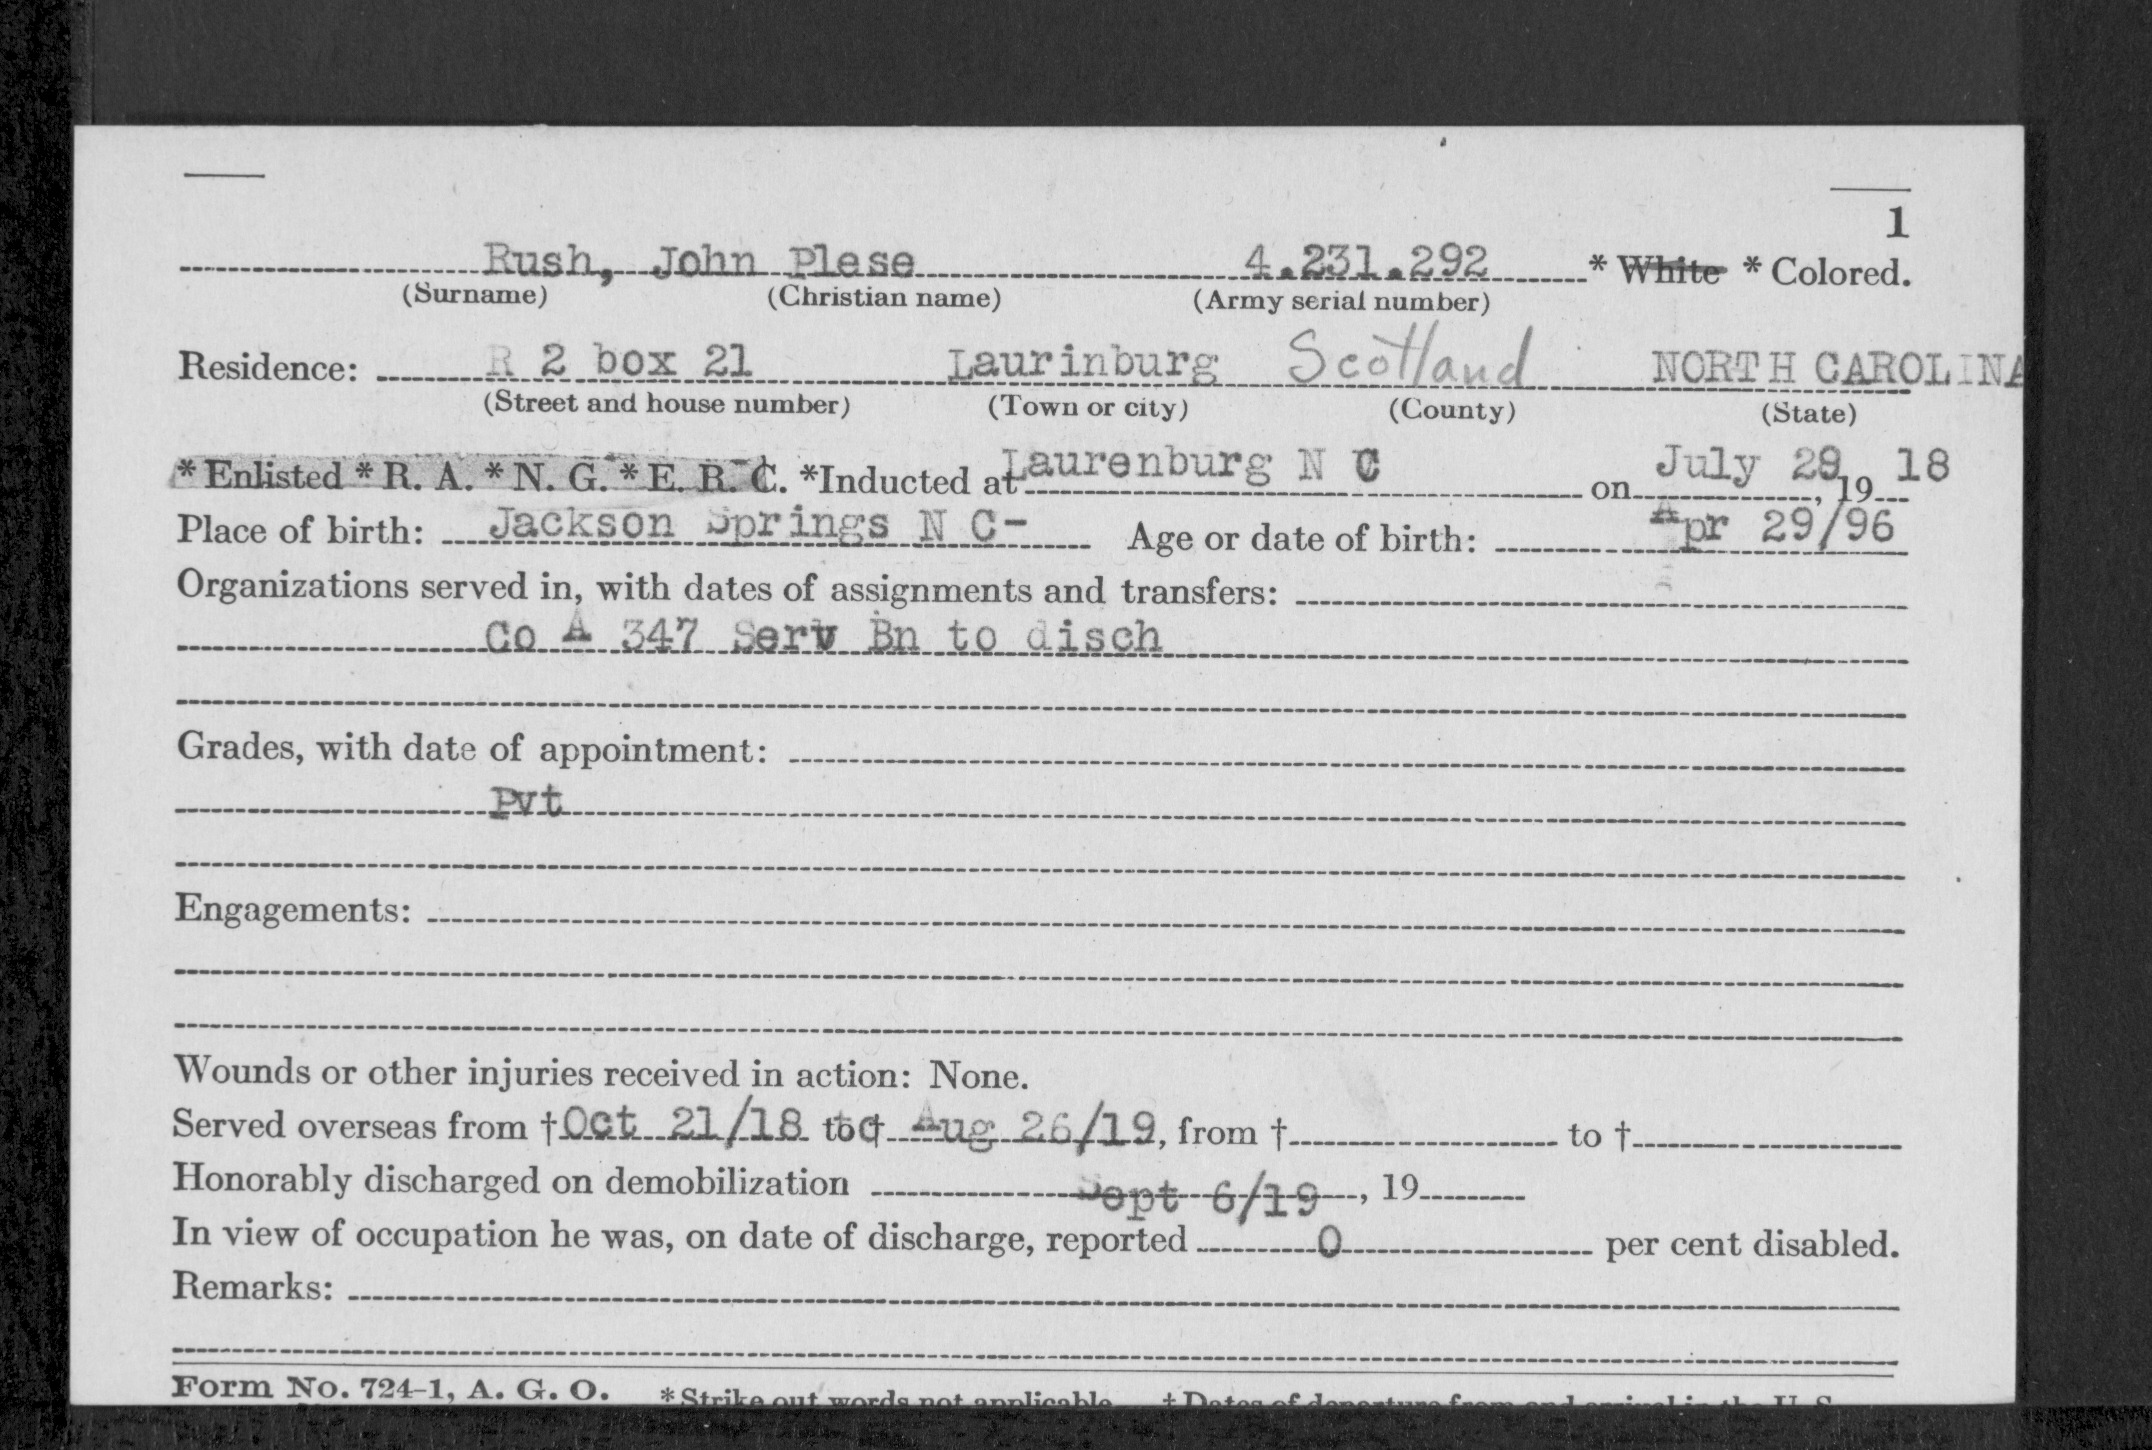 1
Rush, John Plese 4.231.292 * White * Colored.
(Surname) (Christian name) (Army serial number)
Residence: R 2 box 21 Laurinburg Scotland NORTH CAROLINA
(Street and house number) (Town or city) (County) (State)
* Enlisted * R. A. * N. G. * E. R. C. *Inducted at Laurenburg N C on July 29, 19 18
Place of birth: Jackson Springs N C- Age or date of birth: Apr 29/96
Organizations served in, with dates of assignments and transfers:
Co A 347 Serv Bn to disch
Grades, with date of appointment:
Pvt
Engagements:
Wounds or other injuries received in action: None.
Served overseas from † Oct 21/18 to † Aug 26/19, from † to †
Honorably discharged on demobilization Sept 6/19, 19
In view of occupation he was, on date of discharge, reported 0 per cent disabled.
Remarks:
Form No. 724-1, A. G. O. * Strike out words not applicable. † Dates of departure from and arrival in the U. S.